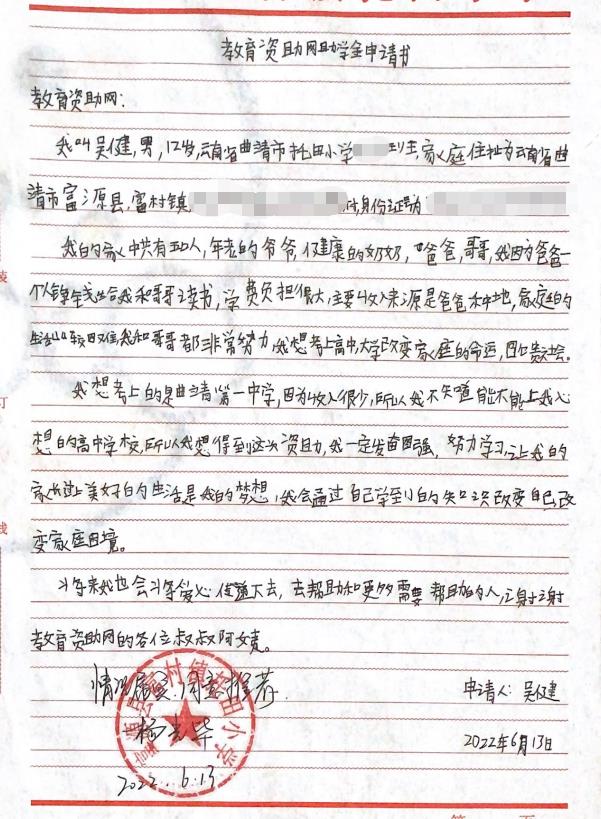 教育资助网助学金申请书
教育资助网：
我叫吴健，男，12岁，云南省曲靖市托田小学 班主，家庭住址为云南省曲
靖市富源县，富村镇， 身份证号为
我的家中共有五口人，年老的爷爷，健康的奶奶，爸爸，哥哥，我因为爸爸一
个人 钱给我和哥哥读书，学费负担很大，主要收入来源是爸爸种地，家庭的
生活比较困 我和哥哥都非常努力，我想考上高中，大学改变家庭的命运，回 社会。
我想考上的是曲靖第一中学，因为收入很少，所以我不知道能不能上我心
想的高中学校，所以我想得到这次资助，我一定发奋图强，努力学习，让我的
家 过上美好的生活是我的梦想，我会通过自己学到的知识改变自己改
变家庭困境。
将来我也会将爱心传递下去，去帮助和更多需要帮助的人，谢谢
教育资助网的各位叔叔阿姨。
情况属实，同意推荐.
申请人：吴健
杨 毕
2022年6月13日
2022.6.13
富村镇托田小学